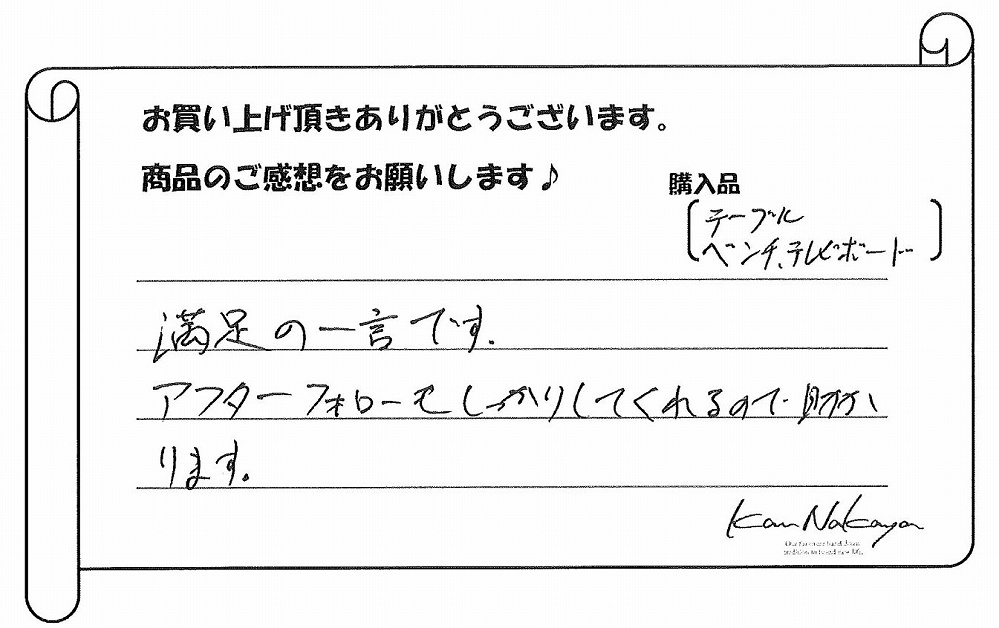 お買い上げ頂きありがとうございます。
商品のご感想をお願いします♪
購入品
テーブル
ベンチ、テレビボード
満足の一言です.
アフターフォローもしっかりしてくれるので助か
ります。
Kan Nakaya